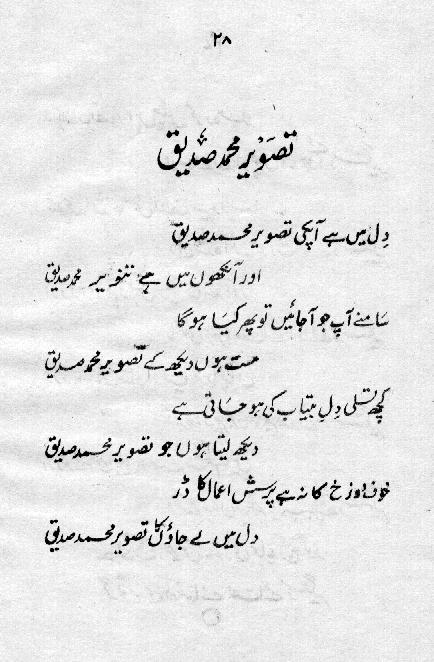 ۲۸
تصویر محمد صدیق
دل میں ہے آپکی تصویر محمد صدیق
اور آنکھوں میں ہے تنویر محمد صدیق
سامنے آپ جو آجائیں تو پھر کیا ہوگا
مست ہوں دیکھ کے تصویر محمد صدیق
کچھ تسلی دلِ بیتاب کی ہو جاتی ہے
دیکھ لیتا ہوں جو تصویر محمد صدیق
خوف دوزخ کا نہ ہے پرسش اعمال کا ڈر
دل میں لے جاؤں گا تصویر محمد صدیق